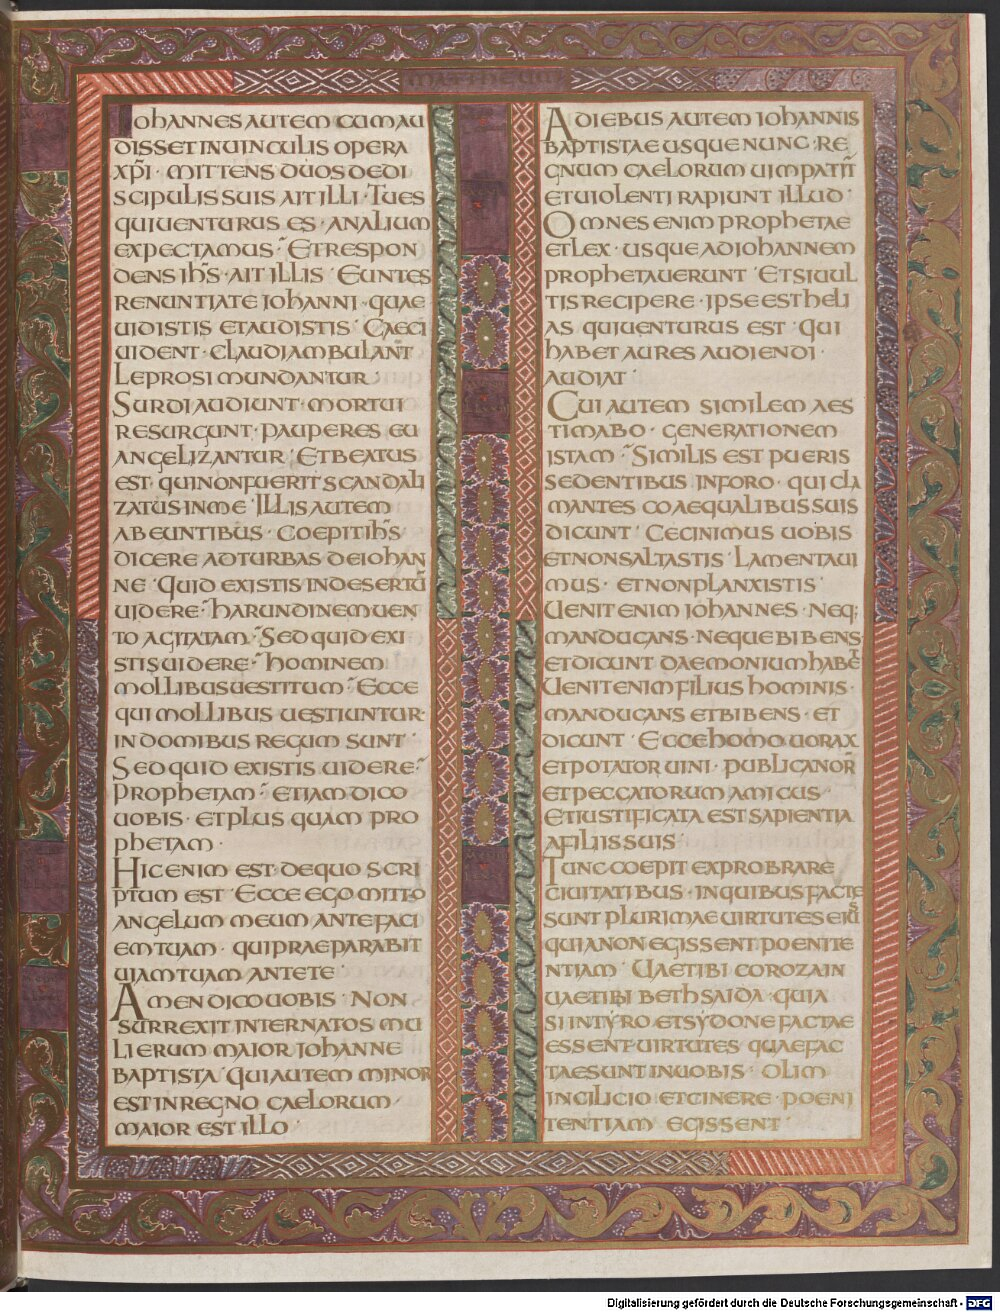 MATTHEUM
IOHANNES AUTEM CUM AU
DISSET IN UINCULIS OPERA
XPI · MITTENS DUOS DE DI
SCIPULIS SUIS AIT ILLI · TU ES
QUI UENTURUS ES · AN ALIUM
EXPECTAMUS · ET RESPON
DENS IHS · AIT ILLIS · EUNTES
RENUNTIATE IOHANNI · QUAE
UIDISTIS ET AUDISTIS · CAECI
UIDENT · CLAUDI AMBULANT
LEPROSI MUNDANTUR ·
SURDI AUDIUNT · MORTUI
RESURGUNT · PAUPERES EU
ANGELIZANTUR · ET BEATUS
EST · QUI NON FUERIT SCANDALI
ZATUS IN ME · ILLIS AUTEM
ABEUNTIBUS · COEPIT IHS
DICERE AD TURBAS DE IOHAN
NE · QUID EXISTIS IN DESERTŪ
UIDERE · HARUNDINEM UEN
TO AGITATAM · SED QUID EXI
STIS UIDERE · HOMINEM
MOLLIBUS UESTITUM · ECCE
QUI MOLLIBUS UESTIUNTUR ·
IN DOMIBUS REGUM SUNT ·
SED QUID EXISTIS UIDERE ·
PROPHETAM · ETIAM DICO
UOBIS · ET PLUS QUAM PRO
PHETAM ·
HIC ENIM EST · DE QUO SCRI
PTUM EST · ECCE EGO MITTO
ANGELUM MEUM ANTE FACI
EM TUAM · QUI PRAEPARABIT
UIAM TUAM ANTE TE ·
AMEN DICO UOBIS · NON
SURREXIT INTER NATOS MU
LIERUM MAIOR IOHANNE
BAPTISTA · QUI AUTEM MINOR
EST IN REGNO CAELORUM ·
MAIOR EST ILLO ·
A DIEBUS AUTEM IOHANNIS
BAPTISTAE USQUE NUNC · RE
GNUM CAELORUM UIM PATIT̄
ET UIOLENTI RAPIUNT ILLUD ·
OMNES ENIM PROPHETAE
ET LEX · USQUE AD IOHANNEM
PROPHETAUERUNT · ET SI UUL
TIS RECIPERE · IPSE EST HELI
AS QUI UENTURUS EST · QUI
HABET AURES AUDIENDI ·
AUDIAT ·
CUI AUTEM SIMILEM AES
TIMABO · GENERATIONEM
ISTAM · SIMILIS EST PUERIS
SEDENTIBUS IN FORO · QUI CLA
MANTES COAEQUALIBUS SUIS
DICUNT · CECINIMUS UOBIS
ET NON SALTASTIS · LAMENTAUI
MUS · ET NON PLANXISTIS ·
UENIT ENIM IOHANNES · NEQ;
MANDUCANS · NEQUE BIBENS
ET DICUNT DAEMONIUM HABET
UENIT ENIM FILIUS HOMINIS ·
MANDUCANS ET BIBENS · ET
DICUNT · ECCE HOMO UORAX
ET POTATOR UINI · PUBLICANOR̄
ET PECCATORUM AMICUS ·
ET IUSTIFICATA EST SAPIENTIA
A FILIIS SUIS ·
TUNC COEPIT EXPROBRARE
CIUITATIBUS · IN QUIBUS FACTE
SUNT PLURIMAE UIRTUTES EIUS
QUIA NON EGISSENT POENITE
NTIAM · UAE TIBI COROZAIN
UAE TIBI BETHSAIDA · QUIA
SI IN TYRO ET SYDONE FACTAE
ESSENT UIRTUTES QUAE FAC
TAE SUNT IN UOBIS · OLIM
IN CILICIO ET CINERE · POENI
TENTIAM EGISSENT
Digitalisierung gefördert durch die Deutsche Forschungsgemeinschaft - DFG